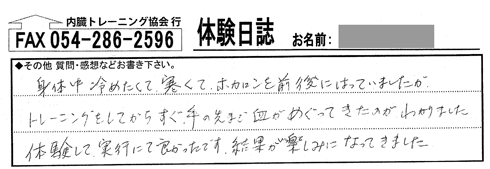 内臓トレーニング協会 行
FAX 054-286-2596
体験日誌
お名前:
◆その他 質問・感想などお書き下さい。
身体中冷めたくて、寒くて、ホカロンを前後にはっていましたが、
トレーニングをしてからすぐ、手の先まで血がめぐってきたのがわかりました
体験して、実行にて良かったです、結果が楽しみになってきました